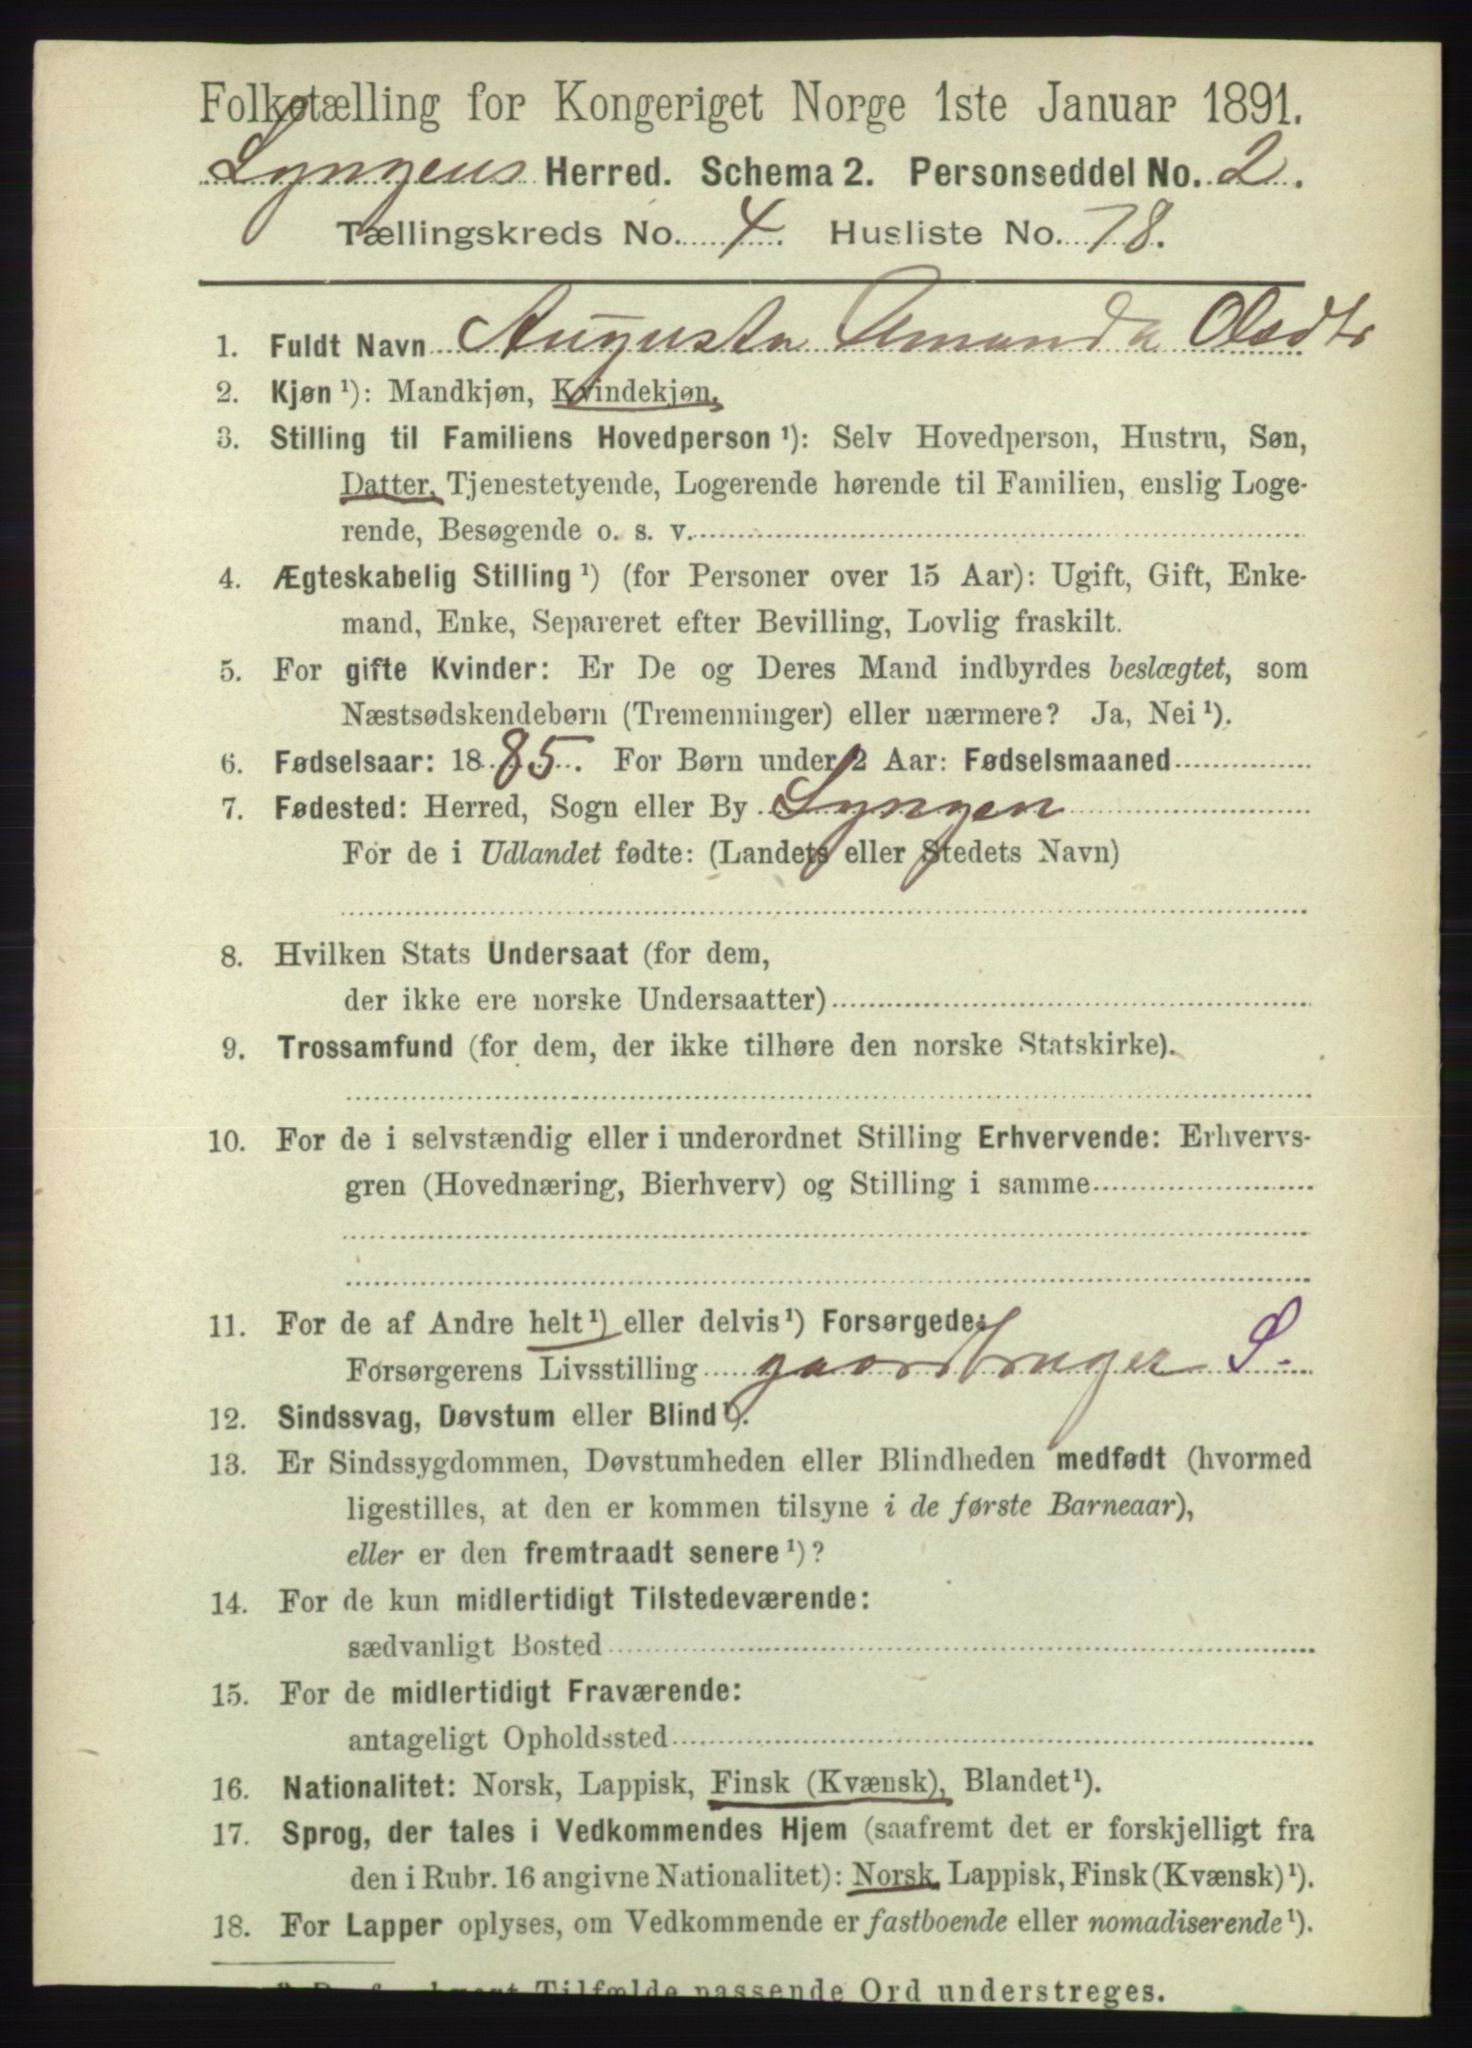 Folketælling for Kongeriget Norge 1ste Januar 1891.
Lyngens Herred. Schema 2. Personseddel No. 2.
Tællingskreds No. 4. Husliste No. 78.
1. Fuldt Navn Augusta Amanda Olsdtr
2. Kjøn ¹): Mandkjøn, Kvindekjøn.
3. Stilling til Familiens Hovedperson ¹): Selv Hovedperson, Hustru, Søn,
Datter, Tjenestetyende, Logerende hørende til Familien, enslig Loge-
rende, Besøgende o. s. v.
4. Ægteskabelig Stilling ¹) (for Personer over 15 Aar): Ugift, Gift, Enke-
mand, Enke, Separeret efter Bevilling, Lovlig fraskilt.
5. For gifte Kvinder: Er De og Deres Mand indbyrdes beslægtet, som
Næstsødskendebørn (Tremenninger) eller nærmere? Ja, Nei ¹).
6. Fødselsaar: 1885. For Børn under 2 Aar: Fødselsmaaned
7. Fødested: Herred, Sogn eller By Lyngen
For de i Udlandet fødte: (Landets eller Stedets Navn)
8. Hvilken Stats Undersaat (for dem,
der ikke ere norske Undersaatter)
9. Trossamfund (for dem, der ikke tilhøre den norske Statskirke).
10. For de i selvstændig eller i underordnet Stilling Erhvervende: Erhvervs-
gren (Hovednæring, Bierhverv) og Stilling i samme
11. For de af Andre helt ¹) eller delvis ¹) Forsørgede:
Forsørgerens Livsstilling gaardbruger S.
12. Sindssvag, Døvstum eller Blind ¹).
13. Er Sindssygdommen, Døvstumheden eller Blindheden medfødt (hvormed
ligestilles, at den er kommen tilsyne i de første Barneaar),
eller er den fremtraadt senere ¹)?
14. For de kun midlertidigt Tilstedeværende:
sædvanligt Bosted
15. For de midlertidigt Fraværende:
antageligt Opholdssted
16. Nationalitet: Norsk, Lappisk, Finsk (Kvænsk), Blandet ¹).
17. Sprog, der tales i Vedkommendes Hjem (saafremt det er forskjelligt fra
den i Rubr. 16 angivne Nationalitet): Norsk, Lappisk, Finsk (Kvænsk) ¹).
18. For Lapper oplyses, om Vedkommende er fastboende eller nomadiserende ¹).
Tilfælde passende Ord understreges.